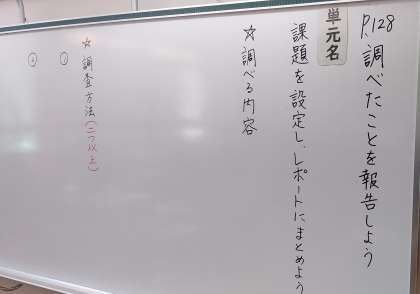 P.128 調べたことを報告しよう
単元名
課題を設定し、レポートにまとめよう
☆調べる内容
☆調査方法(二つ以上)
①
②